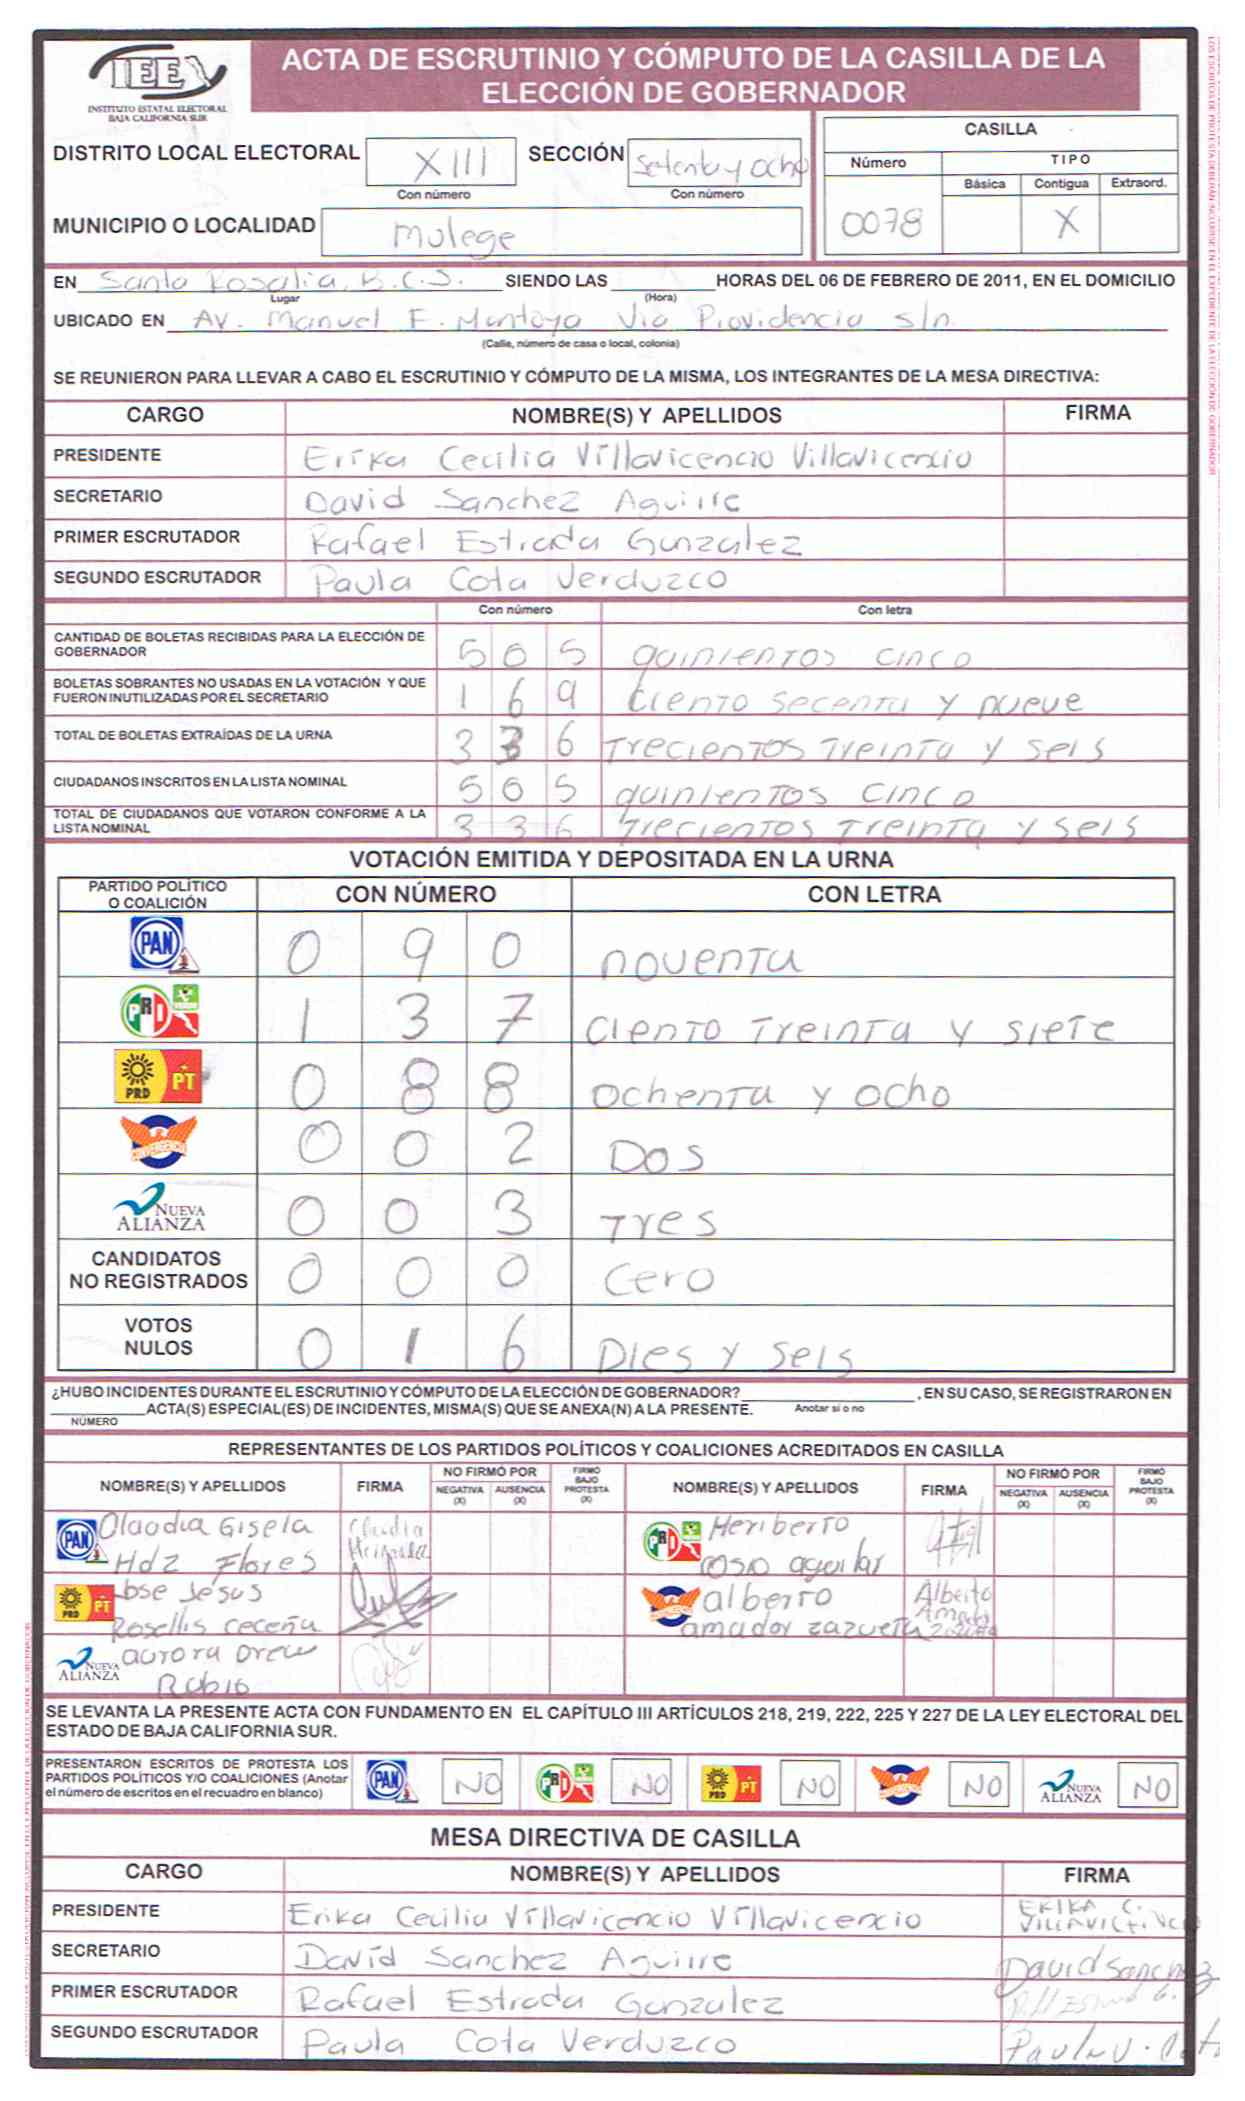 IEEX
INSTITUTO ESTATAL ELECTORAL
BAJA CALIFORNIA SUR
ACTA DE ESCRUTINIO Y CÓMPUTO DE LA CASILLA DE LA
ELECCIÓN DE GOBERNADOR
DISTRITO LOCAL ELECTORAL XIII SECCIÓN Setenta y ocho
Con número Con número
MUNICIPIO O LOCALIDAD Mulege
CASILLA
Número TIPO
Básica Contigua Extraord.
0078 X
EN Santa Rosalia, B.C.S. SIENDO LAS HORAS DEL 06 DE FEBRERO DE 2011, EN EL DOMICILIO
Lugar (Hora)
UBICADO EN AV. Manuel F. Montoya Via Providencia s/n.
(Calle, número de casa o local, colonia)
SE REUNIERON PARA LLEVAR A CABO EL ESCRUTINIO Y CÓMPUTO DE LA MISMA, LOS INTEGRANTES DE LA MESA DIRECTIVA:
CARGO NOMBRE(S) Y APELLIDOS FIRMA
PRESIDENTE Erika Cecilia Villavicencio Villavicencio
SECRETARIO David Sanchez Aguirre
PRIMER ESCRUTADOR Rafael Estrada Gunzalez
SEGUNDO ESCRUTADOR Paula Cota Verduzco
Con número Con letra
CANTIDAD DE BOLETAS RECIBIDAS PARA LA ELECCIÓN DE
GOBERNADOR 5 0 5 quinientos cinco
BOLETAS SOBRANTES NO USADAS EN LA VOTACIÓN Y QUE
FUERON INUTILIZADAS POR EL SECRETARIO 1 6 9 ciento secenta y nueve
TOTAL DE BOLETAS EXTRAÍDAS DE LA URNA 3 3 6 Trecientos Treinta y seis
CIUDADANOS INSCRITOS EN LA LISTA NOMINAL 5 0 5 quinientos cinco
TOTAL DE CIUDADANOS QUE VOTARON CONFORME A LA
LISTA NOMINAL 3 3 6 Trecientos Treinta y seis
VOTACIÓN EMITIDA Y DEPOSITADA EN LA URNA
PARTIDO POLÍTICO
O COALICIÓN CON NÚMERO CON LETRA
PAN 0 9 0 noventa
PRI VERDE 1 3 7 ciento Treinta y siete
PRD PT 0 8 8 ochenta y ocho
CONVERGENCIA 0 0 2 Dos
NUEVA
ALIANZA 0 0 3 Tres
CANDIDATOS
NO REGISTRADOS 0 0 0 cero
VOTOS
NULOS 0 1 6 Dies y seis
¿HUBO INCIDENTES DURANTE EL ESCRUTINIO Y CÓMPUTO DE LA ELECCIÓN DE GOBERNADOR? , EN SU CASO, SE REGISTRARON EN
ACTA(S) ESPECIAL(ES) DE INCIDENTES, MISMA(S) QUE SE ANEXA(N) A LA PRESENTE. Anotar sí o no
NÚMERO
REPRESENTANTES DE LOS PARTIDOS POLÍTICOS Y COALICIONES ACREDITADOS EN CASILLA
NOMBRE(S) Y APELLIDOS FIRMA NO FIRMÓ POR NEGATIVA (X) AUSENCIA (X) FIRMÓ BAJO PROTESTA (X) NOMBRE(S) Y APELLIDOS FIRMA NO FIRMÓ POR NEGATIVA (X) AUSENCIA (X) FIRMÓ BAJO PROTESTA (X)
PAN Claudia Gisela Claudia PRI VERDE Heriberto
Hdz Flores Hernandez cosio aguilar
PRD PT Jose Jesus CONVERGENCIA alberto Alberto
Rosellis ceceña amador zazueta Amador zazueta
NUEVA
ALIANZA aurora Drew
Rubio
SE LEVANTA LA PRESENTE ACTA CON FUNDAMENTO EN EL CAPÍTULO III ARTÍCULOS 218, 219, 222, 225 Y 227 DE LA LEY ELECTORAL DEL
ESTADO DE BAJA CALIFORNIA SUR.
PRESENTARON ESCRITOS DE PROTESTA LOS
PARTIDOS POLÍTICOS Y/O COALICIONES (Anotar
el número de escritos en el recuadro en blanco)
PAN NO PRI VERDE NO PRD PT NO CONVERGENCIA NO NUEVA ALIANZA NO
MESA DIRECTIVA DE CASILLA
CARGO NOMBRE(S) Y APELLIDOS FIRMA
PRESIDENTE Erika Cecilia Villavicencio Villavicencio ERIKA C. VILLAVICENCIO
SECRETARIO David Sanchez Aguirre David Sanchez
PRIMER ESCRUTADOR Rafael Estrada Gonzalez
SEGUNDO ESCRUTADOR Paula Cota Verduzco
LOS ESCRITOS DE PROTESTA DEBERÁN INCLUIRSE EN EL EXPEDIENTE DE LA ELECCIÓN DE GOBERNADOR